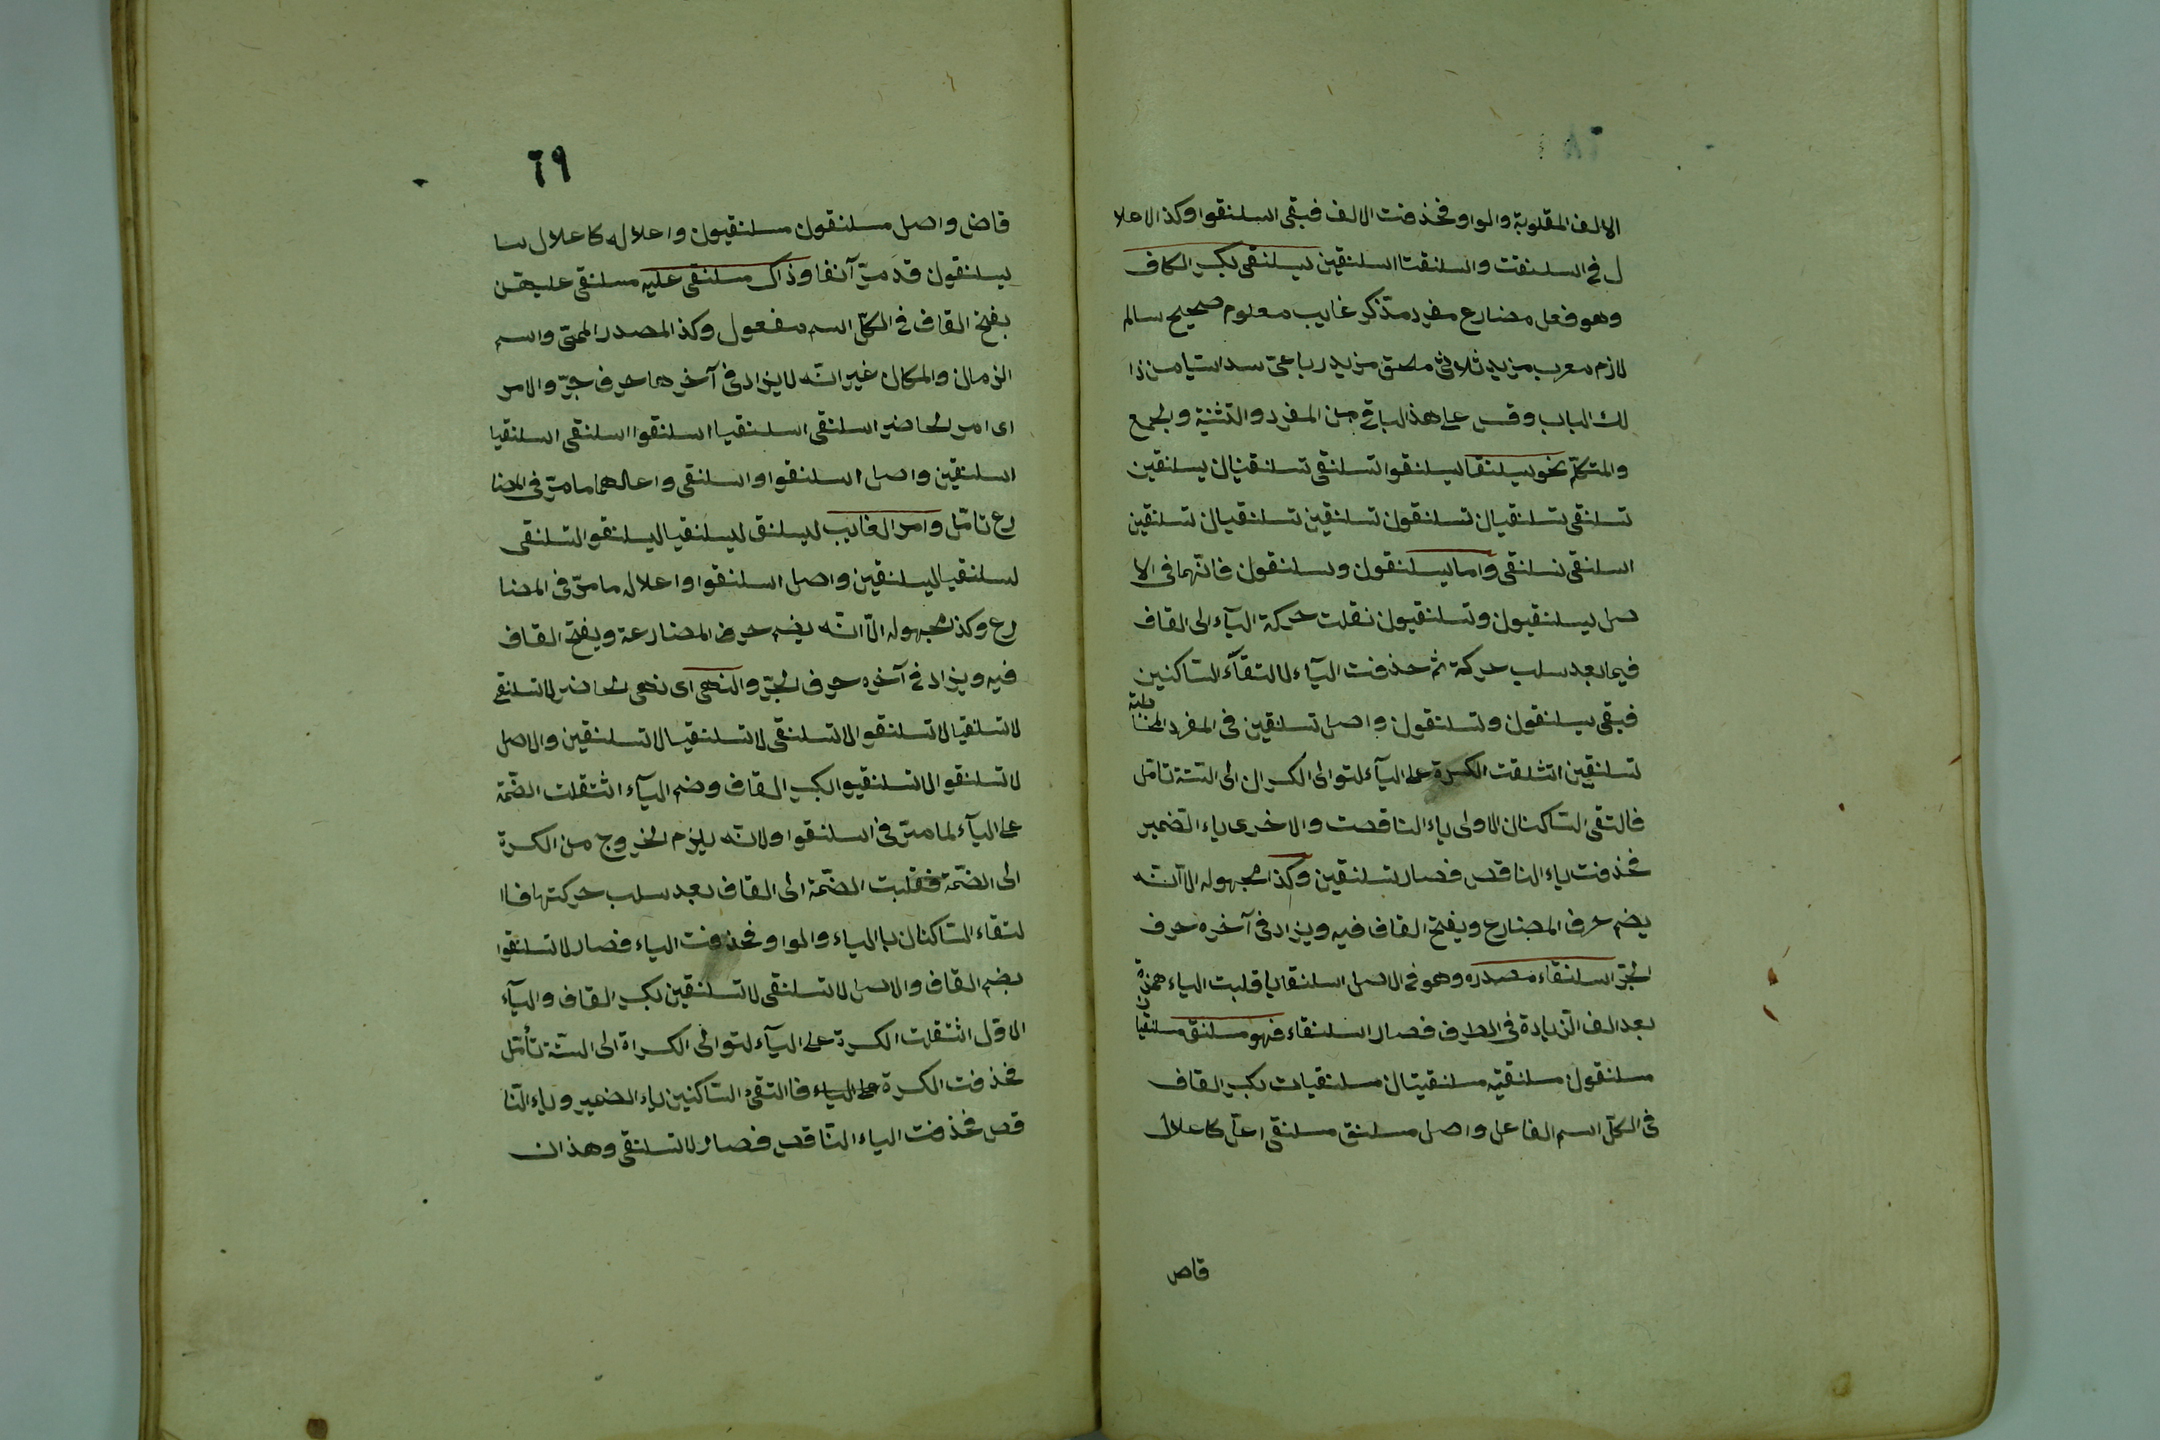 الالف المقلوبة والواو فحذفت الالف فبقى اسلنقوا وكذا الاعلا
ل فى اسلنقت واسلنقتا اسلنقين يسلنقى بكسر الكاف
وهو فعل مضارع مفرد مذكر غايب معلوم صحيح سالم
لازم معرب مزيد ثلاثى ملحق مزيد رباعى سداسيا من ذا
لك الباب وقس على هذا الباقى من المفرد والتثنية والجمع
والمتكلم نحو يسلنقيا يسلنقوا تسلنقى تسلنقيان يسلنقين
تسلنقى تسلنقيان تسلنقون تسلنقين تسلنقيان تسلنقين
اسلنقى نسلنقى واما يسلنقون وتسلنقون فانهما فى الا
صل يسلنقيون وتسلنقيون نقلت حركة الياء الى القاف
فيما بعد سلب حركة ثم حذفت الياء لالتقاء الساكنين
فبقى يسلنقون وتسلنقون واصل تسلنقين فى المفرد المخاطبة
تسلنقين استثقلت الكسرة على الياء لتوالى الكسران الى الستة تامل
فالتقى الساكنان الاولى ياء الناقصت والاخرى ياء الضمير
فحذفت ياء الناقص فصار تسلنقين وكذا مجهوله الا انه
يضم حرف المضارع ويفتح القاف فيه ويزاد فى آخره حرف
الجر اسلنقاء مصدره وهو فى الاصل اسلنقايا قلبت الياء همزة
بعد الف الزيادة فى الطرف فصار اسلنقاء فهو مسلنق مسلنقيان
مسلنقون مسلنقية مسلنقيتان مسلنقيات بكسر القاف
فى الكل اسم الفاعل واصل مسلنق مسلنقى اعل كاعلال
قاض
٦٩
قاض واصل مسلنقون مسلنقيون واعلاله كاعلال
يسلنقون قد مر آنفا وذاك مسلنقى عليه مسلنقى عليهن
بفتح القاف فى الكل اسم مفعول وكذا المصدر الميمى واسم
الزمان والمكان غير انه لا يزاد فى آخرهما حرف جر والامر
اى امر الحاضر اسلنقى اسلنقيا اسلنقوا اسلنقى اسلنقيا
اسلنقين واصل اسلنقوا واسلنقى واعالهما مامر فى المضا
رع تامل وامر الغايب ليسلنق ليسلنقيا ليسلنقوا لتسلنقى
لتسلنقيا ليسلنقين واصل اسلنقوا واعلاله مامر فى المضا
رع وكذا مجهوله الا انه يضم حرف المضارعة ويفتح القاف
فيه ويزاد فى آخره حرف الجر والنهى اى نهى الحاضر لا تسلنقى
لا تسلنقيا لا تسلنقوا لا تسلنقى لا تسلنقيا لا تسلنقين والاصل
لا تسلنقوا لا تسلنقيوا بكسر القاف وضم الياء استثقلت الضمة
على الياء لما مر فى اسلنقوا ولانه يلزم الخروج من الكسرة
الى الضمة فنقلبت الضمة الى القاف بعد سلب حركتها فا ا
لتقاء الساكنان بالياء والواو فحذفت الياء فصار لا تسلنقوا
بضم القاف والاصل لا تسلنقى لا تسلنقين بكسر القاف والياء
الاول استثقلت الكسرة على الياء لتوالى الكسراة الى الستة تأمل
فحذفت الكسرة على الياء فالتقى الساكنين ياء الضمير وياء النا
قص فحذفت الياء الناقص فصار لا تسلنقى وهذان